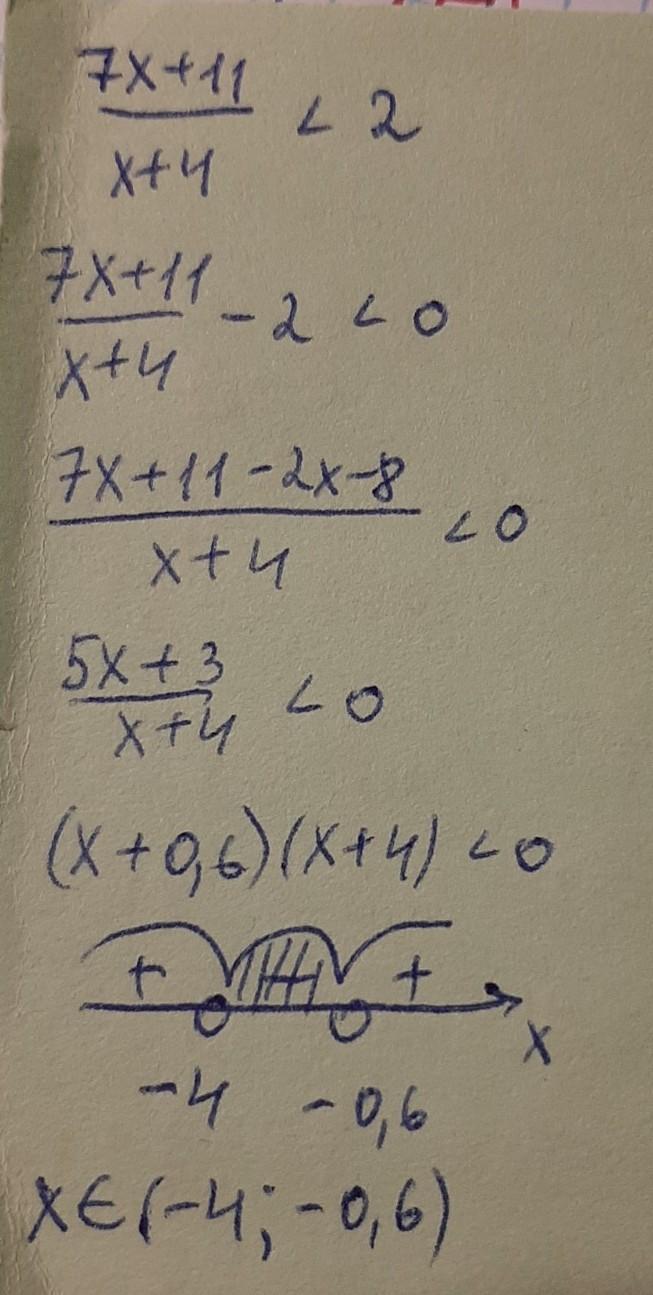 7x+11
x+4
< 2
7x+11
x+4
- 2 < 0
7x+11-2x-8
x+4
< 0
5x+3
x+4
< 0
(x+0,6)(x+4) < 0
+ +
x
-4 -0,6
x∈(-4; -0,6)